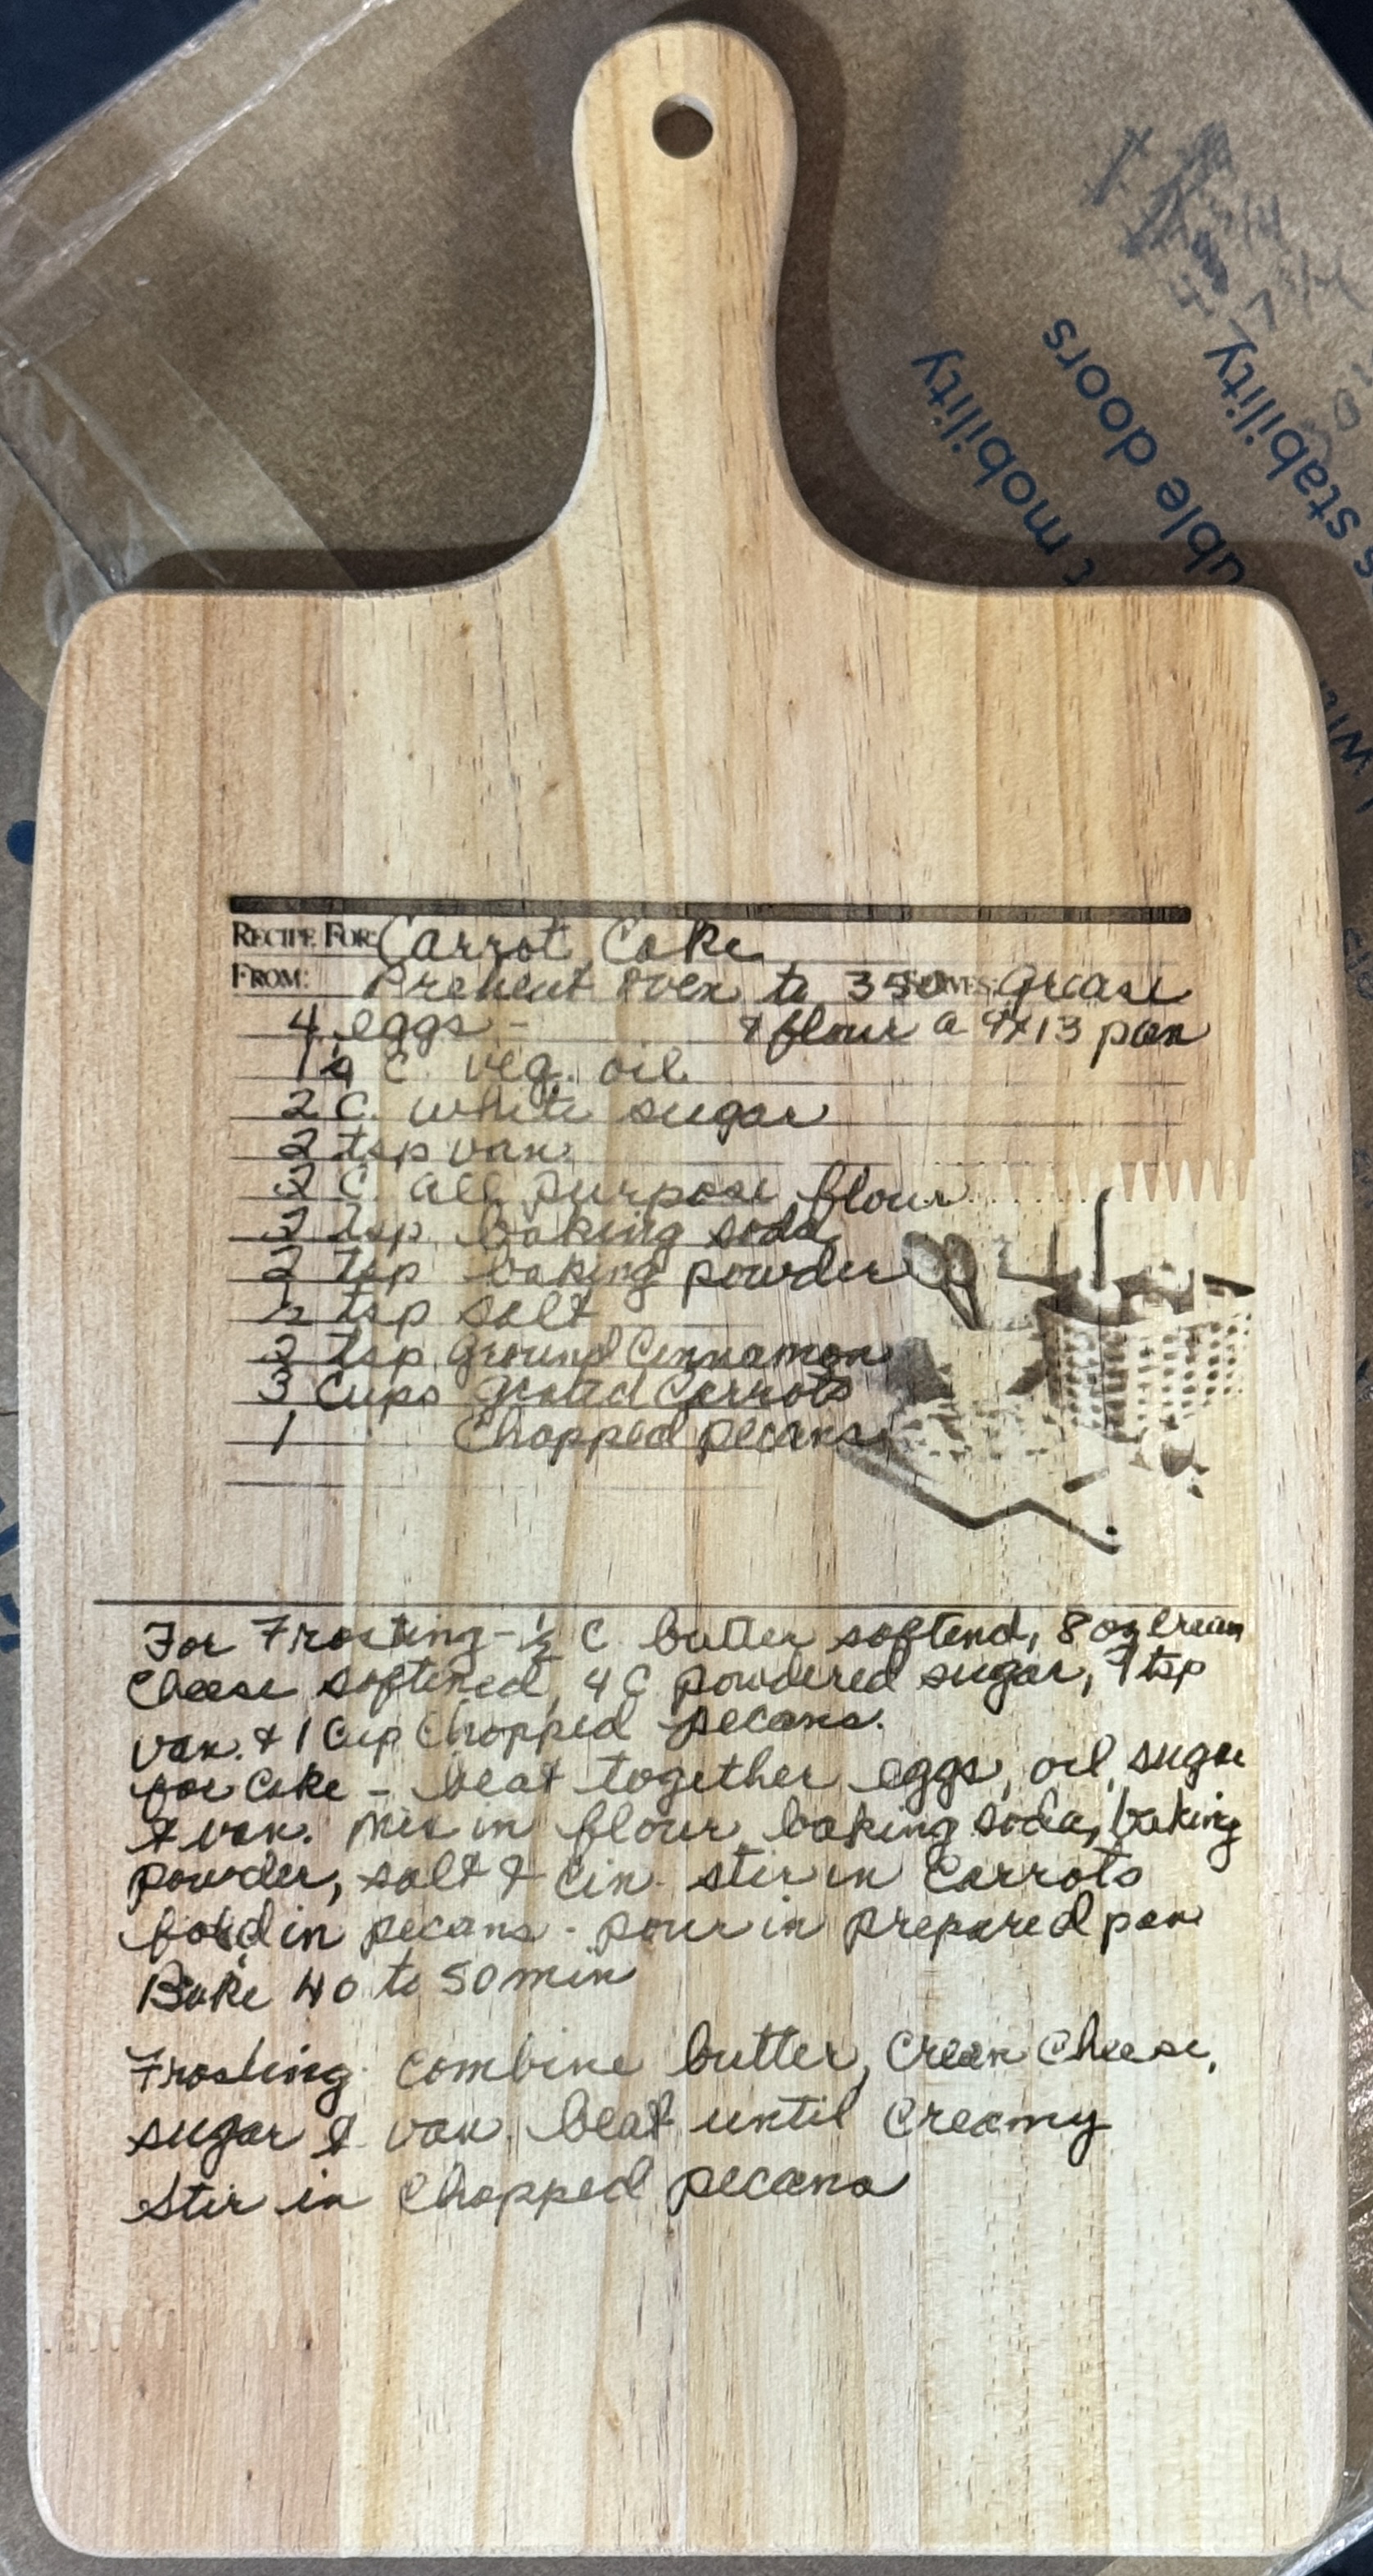 RECIPE FOR: Carrot Cake
FROM: Preheat oven to 350 SERVES: Grease
4 eggs - & flour a 9x13 pan
1¼ C. veg. oil
2 C. white sugar
2 tsp van.
2 C. all purpose flour
2 tsp baking soda
2 tsp baking powder
½ tsp salt
2 tsp ground Cinnamon
3 Cups grated Carrots
1 Chopped pecans
For Frosting - ½ C butter softend, 8 oz Cream
Cheese softened, 4 C powdered sugar, 1 tsp
van. & 1 Cup Chopped pecans.
for Cake - beat together eggs, oil, sugar
& van. Mix in flour, baking soda, baking
powder, salt & Cin. stir in Carrots
fold in pecans - pour in prepared pan
Bake 40 to 50 min
Frosting - Combine butter, Cream Cheese,
sugar & van. beat until Creamy
Stir in Chopped pecans
mobility
doors
stability
7 3/4